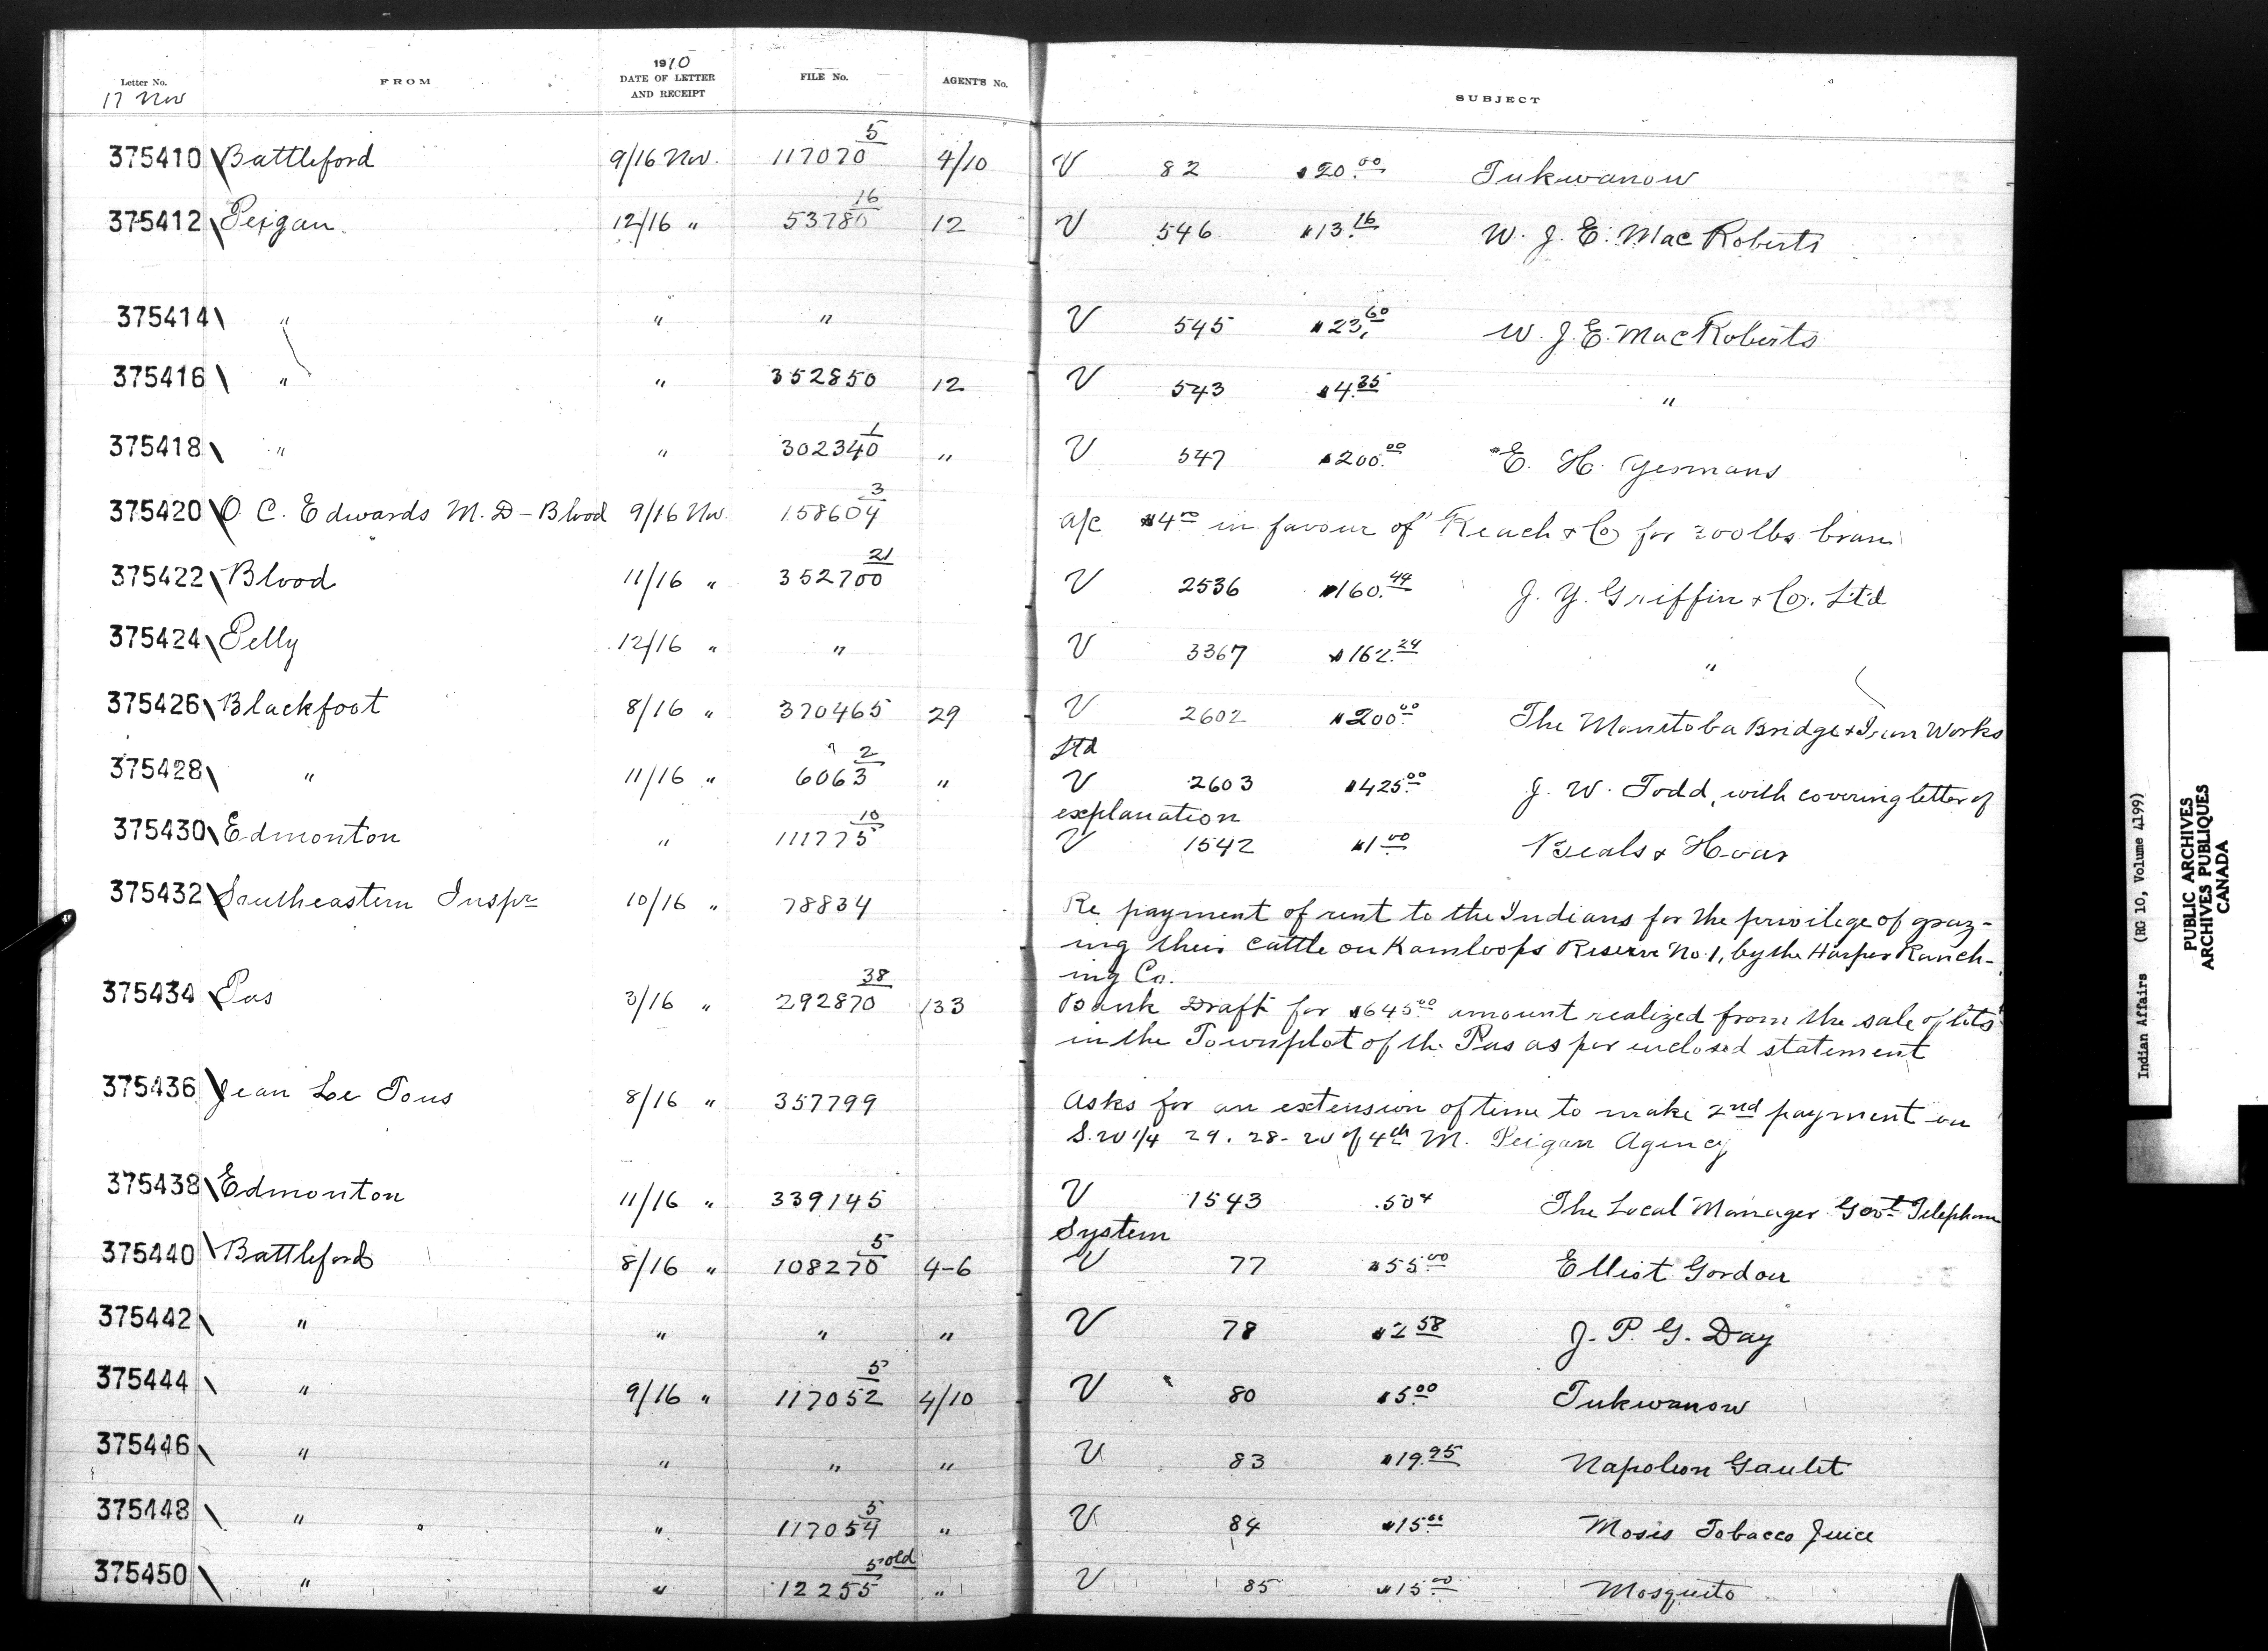 Letter No. FROM 1910 DATE OF LETTER AND RECEIPT FILE No. AGENT'S No. SUBJECT
17 Nov
375410 Battleford 9/16 Nov. 117070 5 4/10 V 82 $20.00 Tukwanow
375412 Peigan. 12/16 " 53780 16 12 V 546 $13.16 W. J. E. MacRoberts
375414 " " " V 545 $23.60 W. J. E. MacRoberts
375416 " " 352850 12 V 543 $4.35 "
375418 " " 302340 1 " V 547 $200.00 E. H. Yeomans
375420 O. C. Edwards M.D - Blood 9/16 Nov. 158604 3 a/c $4.00 in favour of Reach & Co for 200 lbs bran
375422 Blood 11/16 " 352700 21 V 2536 $160.44 J. Y. Griffin & Co. Ltd
375424 Pelly 12/16 " " V 3367 $162.24 "
375426 Blackfoot 8/16 " 370465 29 V 2602 $200.00 The Manitoba Bridge & Iron Works
Ltd
375428 " 11/16 " 6063 2 " V 2603 $425.00 J. W. Todd, with covering letter of
explanation
375430 Edmonton " 111775 10 V 1542 $1.00 Beals & Hoar
375432 Southeastern Inspr 10/16 " 78834 Re payment of rent to the Indians for the privilege of graz-
ing their cattle on Kamloops Reserve No. 1, by the Harper Ranch-
ing Co.
375434 Pas 3/16 " 292870 38 133 Bank Draft for $645.00 amount realized from the sale of lots
in the Townplot of the Pas as per enclosed statement
375436 Jean Le Tous 8/16 " 357799 Asks for an extension of time to make 2nd payment on
S.W 1/4 29. 28- W of 4th M. Peigan Agency
375438 Edmonton 11/16 " 339145 V 1543 .50¢ The Local Manager Govt Telephone
System
375440 Battleford 8/16 " 108270 5 4-6 V 77 $55.00 Elliot Gordon
375442 " " " " V 78 $2.58 J. P. G. Day
375444 " 9/16 " 117052 5 4/10 V 80 $5.00 Tukwanow
375446 " " " " V 83 $19.95 Napoleon Gaulet
375448 " " 117054 5 " V 84 $15.00 Moses Tobacco Juice
375450 " " 12255 5 old " V 85 $15.00 Mosquito
Indian Affairs (RG 10, Volume 4199)
PUBLIC ARCHIVES
ARCHIVES PUBLIQUES
CANADA